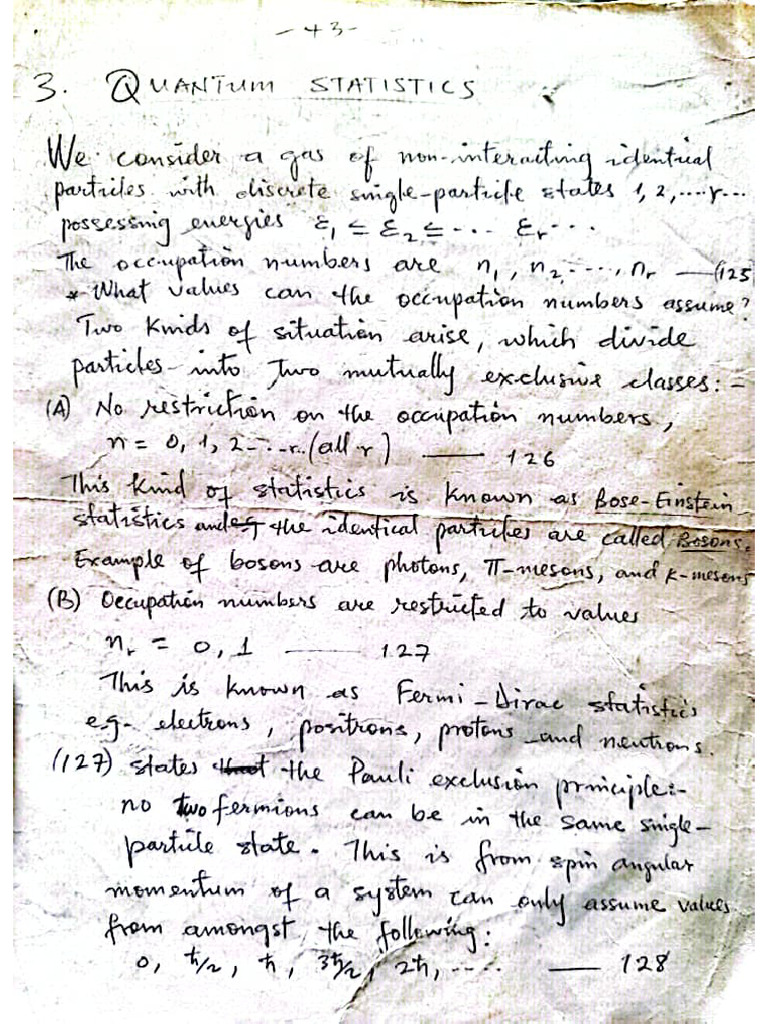 -43-
3. QUANTUM STATISTICS
We consider a gas of non-interacting identical
particles with discrete single-particle states 1, 2, ....r...
possessing energies ε₁ ≤ ε₂ ≤ ... εᵣ...
The occupation numbers are n₁, n₂....., nᵣ —(125
* What values can the occupation numbers assume?
Two kinds of situation arise, which divide
particles into two mutually exclusive classes:-
(A) No restriction on the occupation numbers,
n = 0, 1, 2-...r..(all r) — 126
This kind of statistics is known as Bose-Einstein
statistics and the identical particles are called Bosons.
Example of bosons are photons, π-mesons, and K-mesons
(B) Occupation numbers are restricted to values
nᵣ = 0, 1 — 127
This is known as Fermi-Dirac statistics
e.g. electrons, positrons, protons and neutrons.
(127) states the Pauli exclusion principle:-
no two fermions can be in the same single-
particle state. This is from spin angular
momentum of a system can only assume values
from amongst the following:
0, ħ/2, ħ, 3ħ/2, 2ħ, ..... — 128